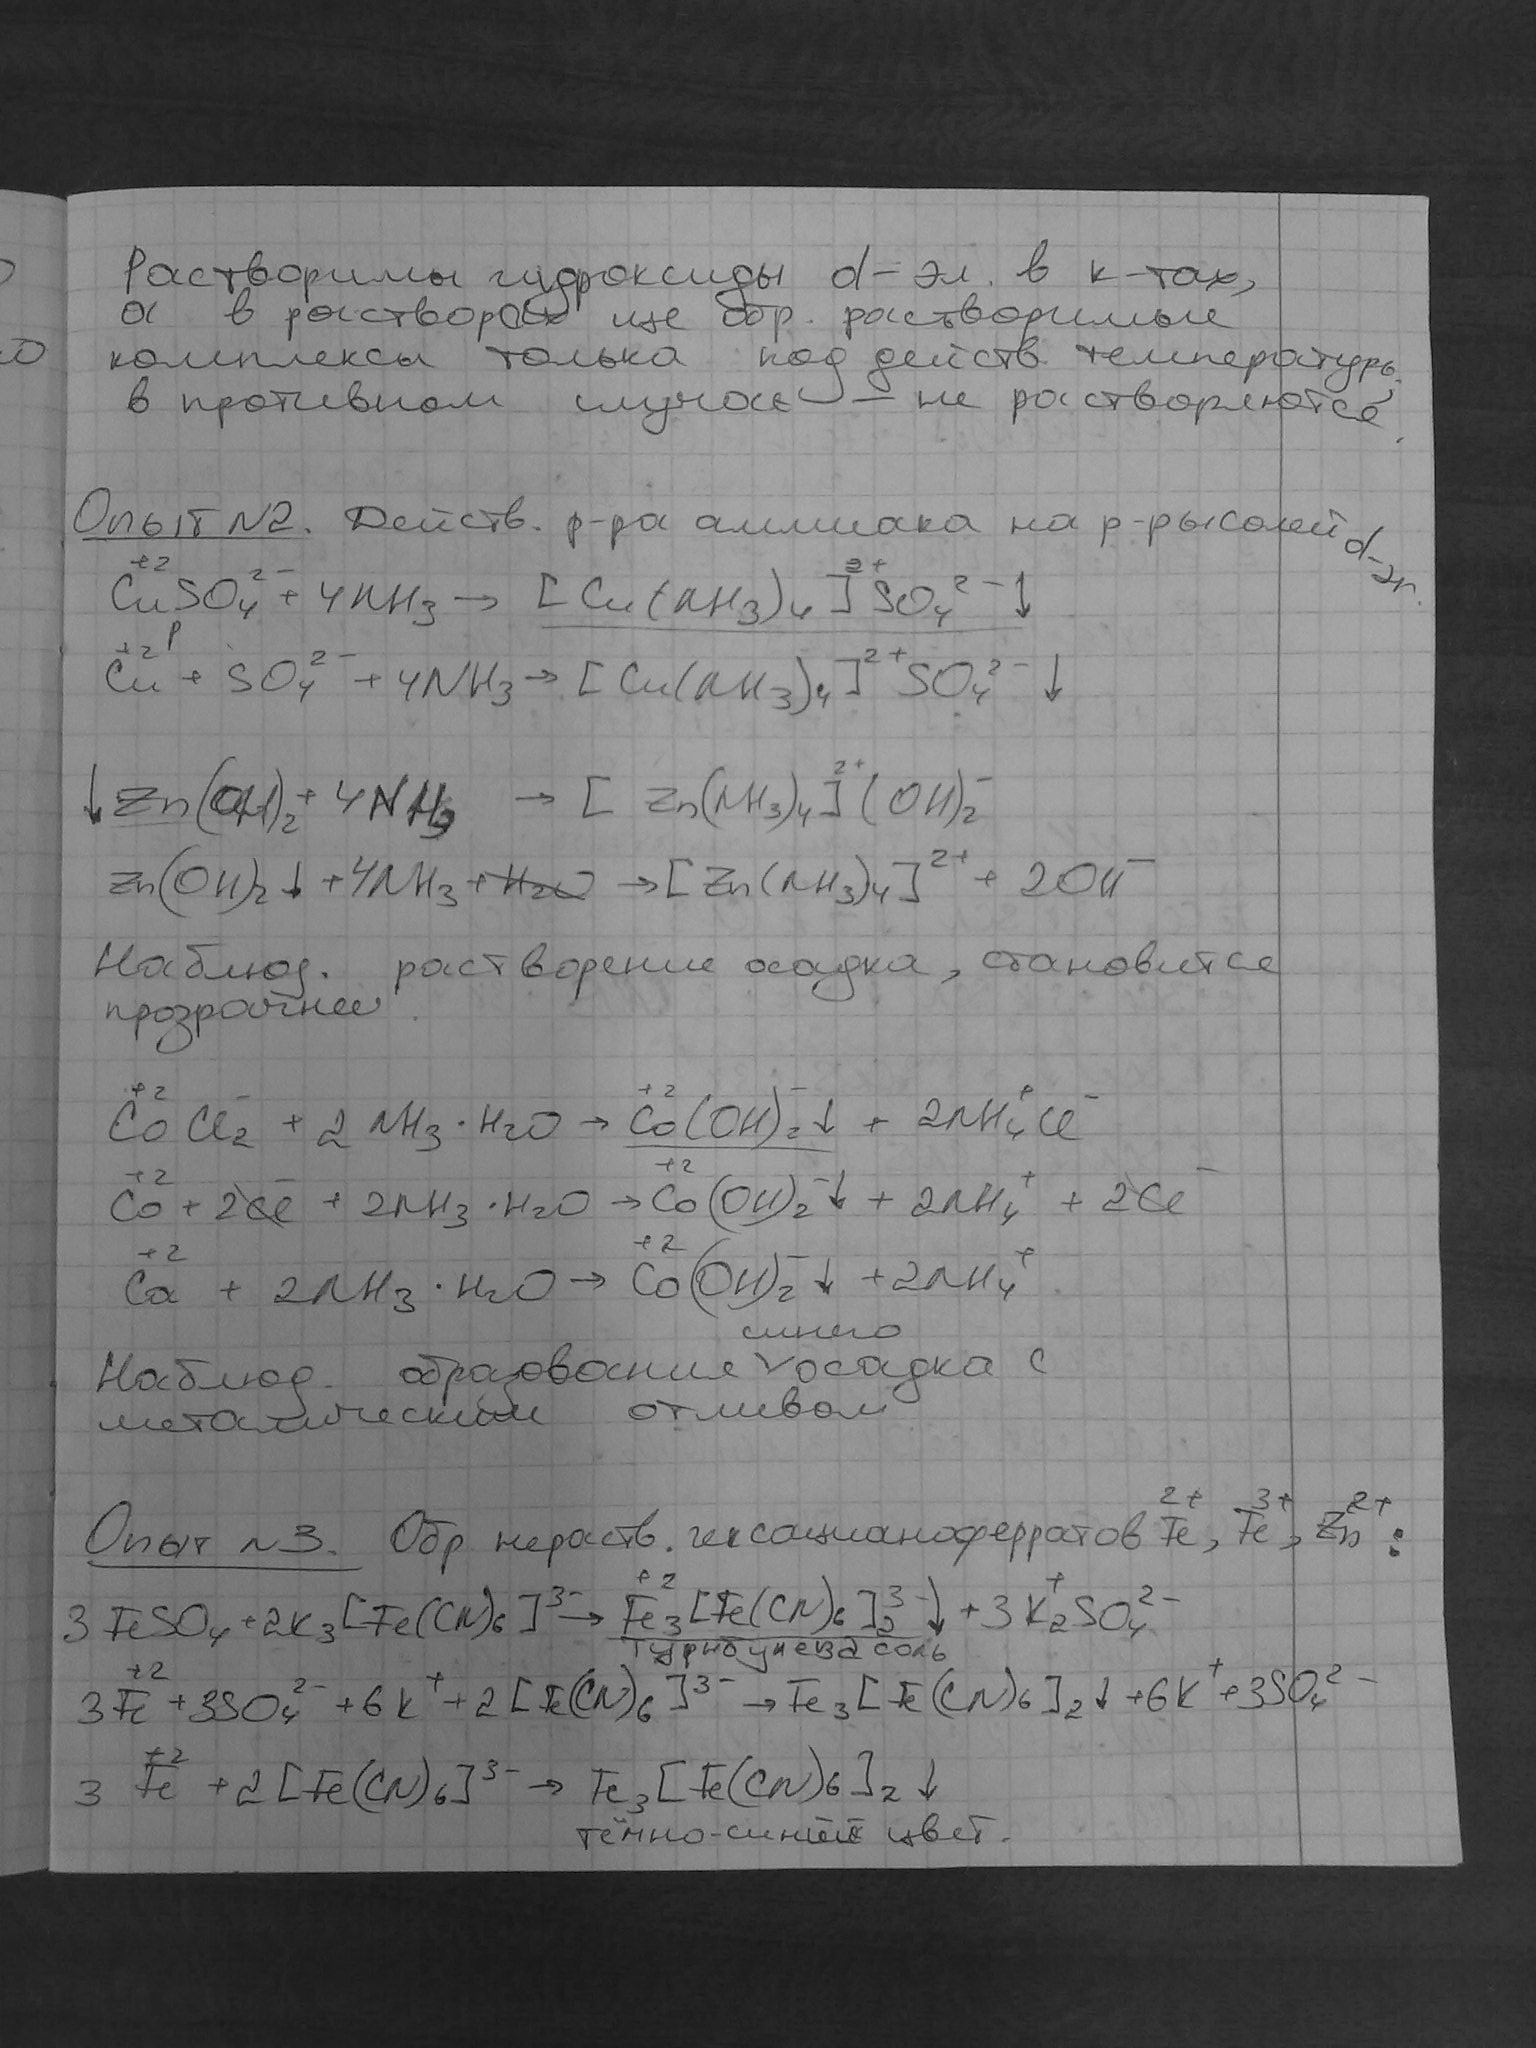 Растворимы гидроксиды d-эл. в к-тах,
а в растворах ще обр. растворимые
комплексы только под действ. температуры
в противном случае – не растворяются.
Опыт N2. Действ. р-ра аммиака на р-ры солей d-эл.
Cu⁺²SO₄²⁻ + 4NH₃ → [Cu(NH₃)₄]²⁺SO₄²⁻↓
р
Cu⁺² + SO₄²⁻ + 4NH₃ → [Cu(NH₃)₄]²⁺SO₄²⁻↓
↓Zn(OH)₂ + 4NH₃ → [Zn(NH₃)₄]²⁺(OH)₂⁻
Zn(OH)₂↓ + 4NH₃ + H₂O → [Zn(NH₃)₄]²⁺ + 2OH⁻
Наблюд. растворение осадка, становится
прозрачнее.
Co⁺²Cl₂⁻ + 2NH₃·H₂O → Co⁺²(OH)₂⁻↓ + 2NH₄⁺Cl⁻
Co⁺² + 2Cl⁻ + 2NH₃·H₂O → Co⁺²(OH)₂⁻↓ + 2NH₄⁺ + 2Cl⁻
Ca⁺² + 2NH₃·H₂O → Co⁺²(OH)₂⁻↓ + 2NH₄⁺
синего
Наблюд. образования ∨ осадка с
металическим отливом
Опыт N3. Обр нераств. гексацианоферратов Fe²⁺, Fe³⁺, Zn²⁺:
3FeSO₄ + 2K₃[Fe(CN)₆]³⁻ → Fe₃⁺²[Fe(CN)₆]₂³⁻↓ + 3K₂⁺SO₄²⁻
турнбулева соль
3Fe⁺² + 3SO₄²⁻ + 6K⁺ + 2[Fe(CN)₆]³⁻ → Fe₃[Fe(CN)₆]₂↓ + 6K⁺ + 3SO₄²⁻
3Fe⁺² + 2[Fe(CN)₆]³⁻ → Fe₃[Fe(CN)₆]₂↓
тёмно-синий цвет.